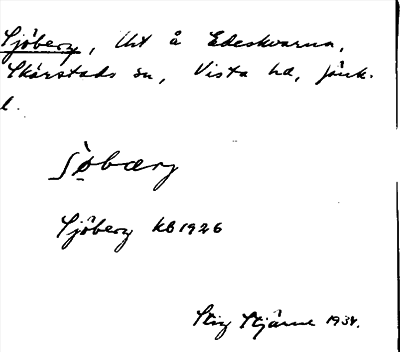 Sjöberg, Uht å Edeskvarna,
Skärstads sn, Vista hd, Jönk.
l.
Sjöbärj
Sjöberg KB 1926
Stig Stjärne 1934.